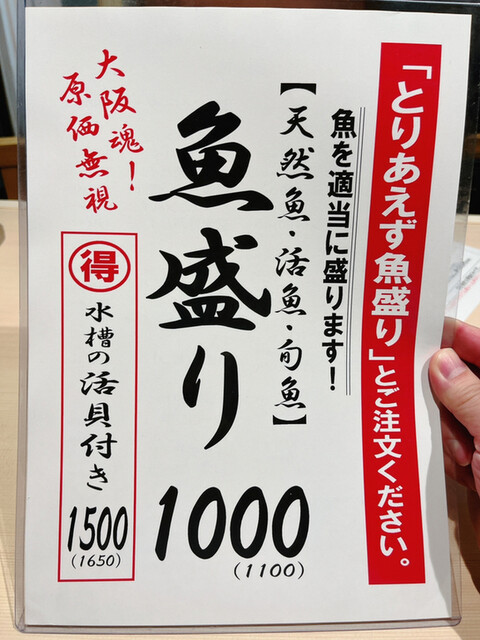 「とりあえず魚盛り」とご注文ください。
魚を適当に盛ります！
【天然魚・活魚・旬魚】
魚盛り
1000
(1100)
大阪魂！
原価無視
得
水槽の活貝付き
1500
(1650)